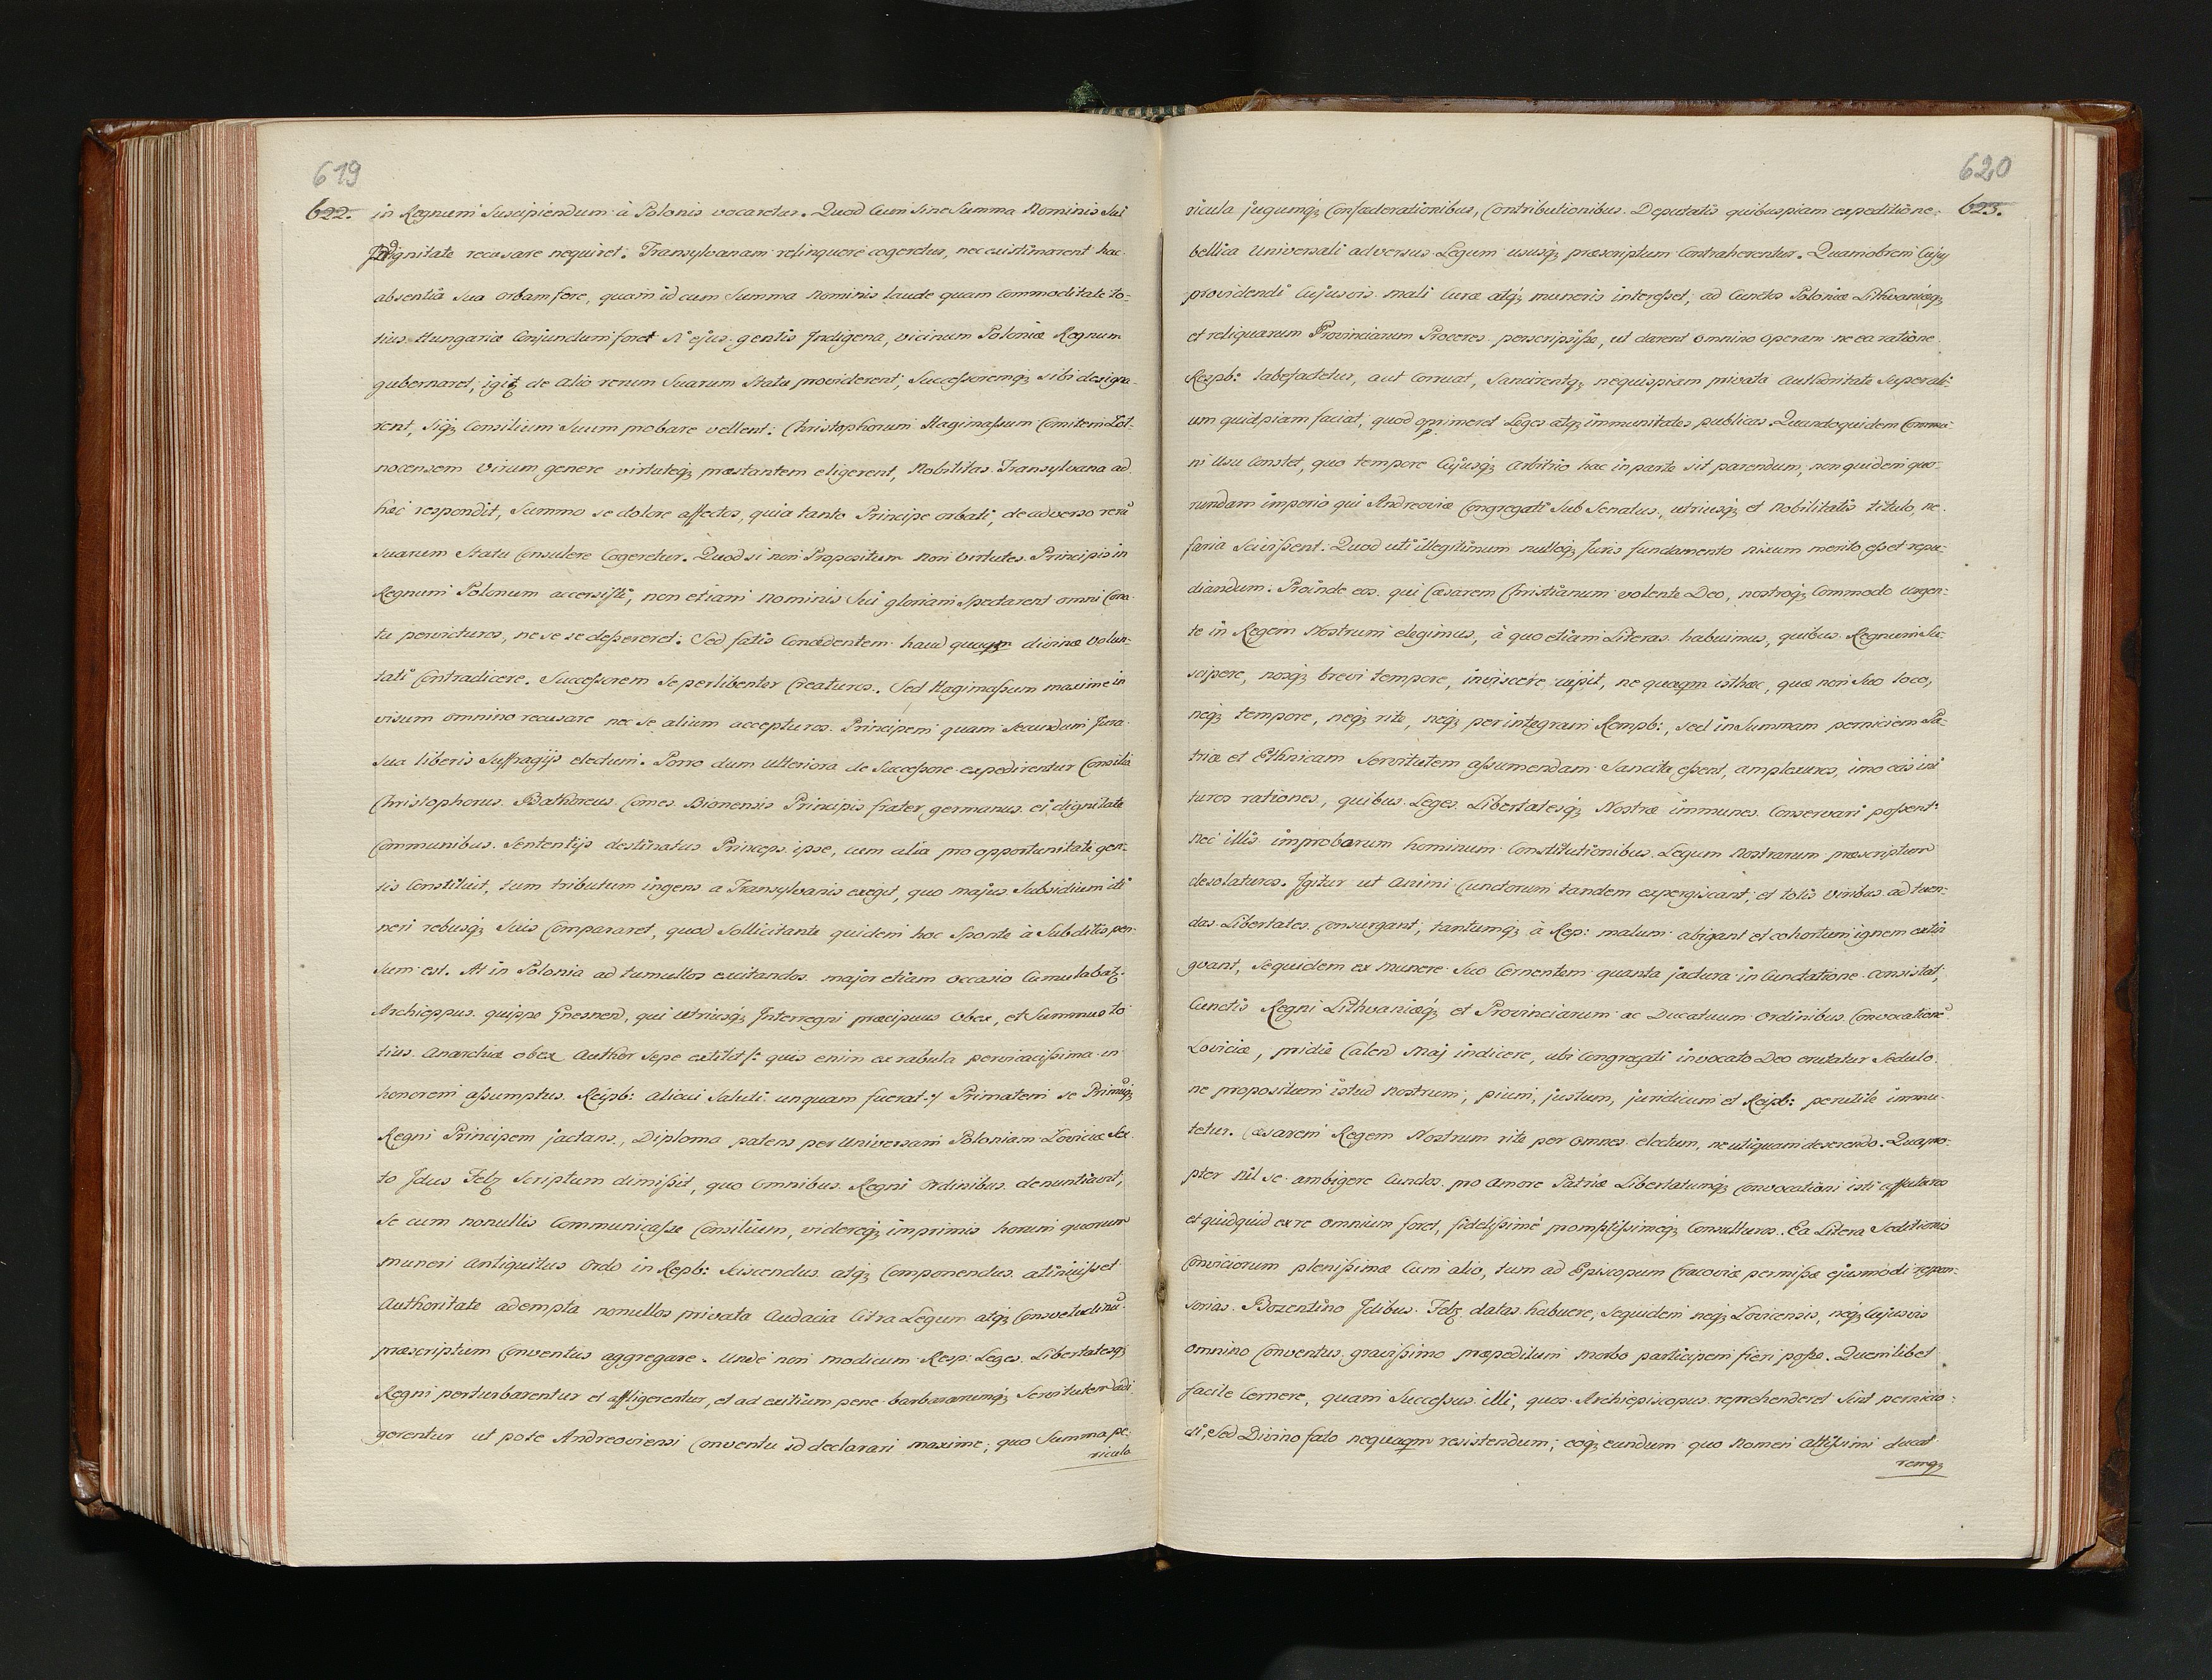 619
622. in Regnum Suscipiendum à Polonis vocaretur. Quod Cum Sine Summa Nominis Sui
Indignitate recusare nequiret. Transylvanam relinquere cogeretur, nec existimarent hac
absentia sua orbam fore, quam id cum Summa nominis laude quam Commoditate to-
tius Hungariæ Conjundum foret si ejus gentis Indigena, vicinum Poloniæ Regnum
gubernaret, igitʒ de alio rerum Suarum Statu providerent, Successoremqʒ sibi designa-
rent, siqʒ Consilium Suum probare vellent. Christophorum Hagimassum Comitem Zol-
nocensem Virum genere virtuteqʒ præstantem eligerent, Nobilitas Transylvana ad
hæc respondit, Summo se dolore affectos, quia tanto Principe orbati, de adverso rerū
suarum Statu Consulere Cogeretur. Quod si non Propositum non virtutes Principis in
Regnum Polonum accersisti, non etiam Nominis Sui gloriam Spectarent omni Cona-
tu pervicturos, ne se se desereret. Sed fatis Concedentem haud quaqm divinæ volun-
tati Contradicere. Successorem se perlibenter Creaturos. Sed Hagimassum maxime in
visum omnino recusare nec se alium accepturos Principem quam secundum Jura
sua liberis Suffragijs electum. Porro dum ulteriora de Successore expedirentur Consilia
Christophorus Bathoreus Comes Bionensis Principis frater germanus ei dignitate
Communibus Sententijs destinatus Princeps ipse, cum alia pro opportunitate gen-
tis Constituit, tum tributum ingens a Transylvanis exegit, quo majus Subsidium iti
neri rebusqʒ Suis Compararet, quod Sollicitante quidem hoc Sponte à Subditis pen-
sum est. At in Polonia ad tumultos excitandos major etiam occasio Cumulabatʒ
Archieppus quippe Gnesnen, qui utriusqʒ Interregni præcipuus obex, et Summus to
tius Anarchiæ obex Author sepe extitit /: quis enim ex rabula pervicacissima in
honorem assumptus Reipb: alicui Saluti unquam fuerat :/ Primatem se Primūqʒ
Regni Principem jactans, Diploma patens per Universam Poloniam Loviciæ Sex
to Idus Febʒ Scriptum dimissit, quo Omnibus Regni Ordinibus denuntiavit,
Se cum nonullis Communicasse Consilium, videreqʒ imprimis horum quorum
muneri Antiquitus Ordo in Repb: Sciscendus atqʒ Componendus atinuisset
Authoritate adempta nonullos privata Audacia Citra Legum atqʒ Consvetudinū
præscriptum Conventus aggregare. Unde non modicum Resp: Leges Libertatesqʒ
Regni perturbarentur et affligerentur, et ad exitium pene barbararumqʒ Servitutem adi
gerentur ut pote Andreoviensi Conventu id declarari maxime, quo Summa pe-
ricula
620
623.
ricula jugumqʒ Confæderationibus, Contributionibus Deputatis quibuspiam expeditione
bellica Universali adversus Legum ususqʒ præscriptum Contraherentur. Quamobrem Cujus
providendi Cujusvis mali Curæ atqʒ muneris interesset, ad Cunctos Poloniæ Lithvaniæqʒ
et reliquarum Provinciarum Proceres perscripsisse, ut darent omnino operam ne ea ratione
Respb: labefactetur, aut Corruat, Sancirentqʒ nequispiam privata authoritate Superali-
um quidpiam faciat, quod opprimeret Leges atqʒ immunitates publicas. Quandoquidem Commu-
ni Usu Constet, quo tempore Cujusqʒ arbitrio hac in parte sit parendum, non quidem quo-
rundam imperio qui Andreoviæ Congregati Sub Senatus, utriusqʒ et Nobilitatis titulo, ne-
faria Scivissent. Quod uti illegitimum nulloqʒ Juris fundamento nixum merito esset repu-
diandum. Proinde eos qui Cæsarem Christianum volente Deo, nostroqʒ Commodo urgen-
te in Regem Nostrum elegimus, à quo etiam Literas habuimus, quibus Regnum Su-
scipere, nosqʒ brevi tempore, inviscere cupit, ne quaqm isthæc, quæ non Suo loco,
neqʒ tempore, neqʒ rite, neqʒ per integram Rempb:, sed in Summam perniciem Pa-
triæ et Ethnicam Servitutem assumendam Sancita essent, amplexuros, imo eas ini
turos rationes, quibus Leges Libertatesqʒ Nostræ immunes Conservari possent
nec illis improbarum hominum Constitutionibus Legum Nostrarum præscriptum
desolaturos. Igitur ut Animi Cunctorum tandem expergiscant, et totis viribus ad tuen-
das Libertates Consurgant, tantumqʒ à Rep: malum abigant et cohortium ignem extin
guant, Sequidem ex munere Suo Cernentem quanta jactura in Cunctatione Consistat,
Cunctis Regni Lithvaniæqʒ et Provinciarum ac Ducatuum Ordinibus Convocationē
Loviciæ, pridie Calend Maj indicere, ubi Congregati invocato Deo enitatur Sedulo
ne propositum istud nostrum, pium, justum, juridicum et Reipb: perutile immu-
tetur. Cæsarem Regem Nostrum rite per omnes electum, ne utiquam deserendo. Quapro-
pter nil se ambigere Cunctos pro Amore Patriæ Libertatumqʒ Convocationi isti affuturos
et quidquid ex re omnium foret, fidelissimè promptissimeqʒ Consulturos. Ea Litera Seditionis
Conviciorum plenissimæ Cum alio, tum ad Episcopum Cracoviæ permissæ ejusmodi respon-
sorias Bozentino Idibus Febʒ datas habuere, Sequidem neqʒ Lovicensis, neqʒ Cujusvis
omnino Conventus gravissimo præpeditum Morbo participem fieri posse. Quemlibet
facile Cernere, quam Successus illi, quos Archiepiscopus reprehenderet Sint pernicio-
si, Sed Divino fato nequaqm resistendum, eoqʒ eundum quo Nomen Altissimi ducat
remqʒ